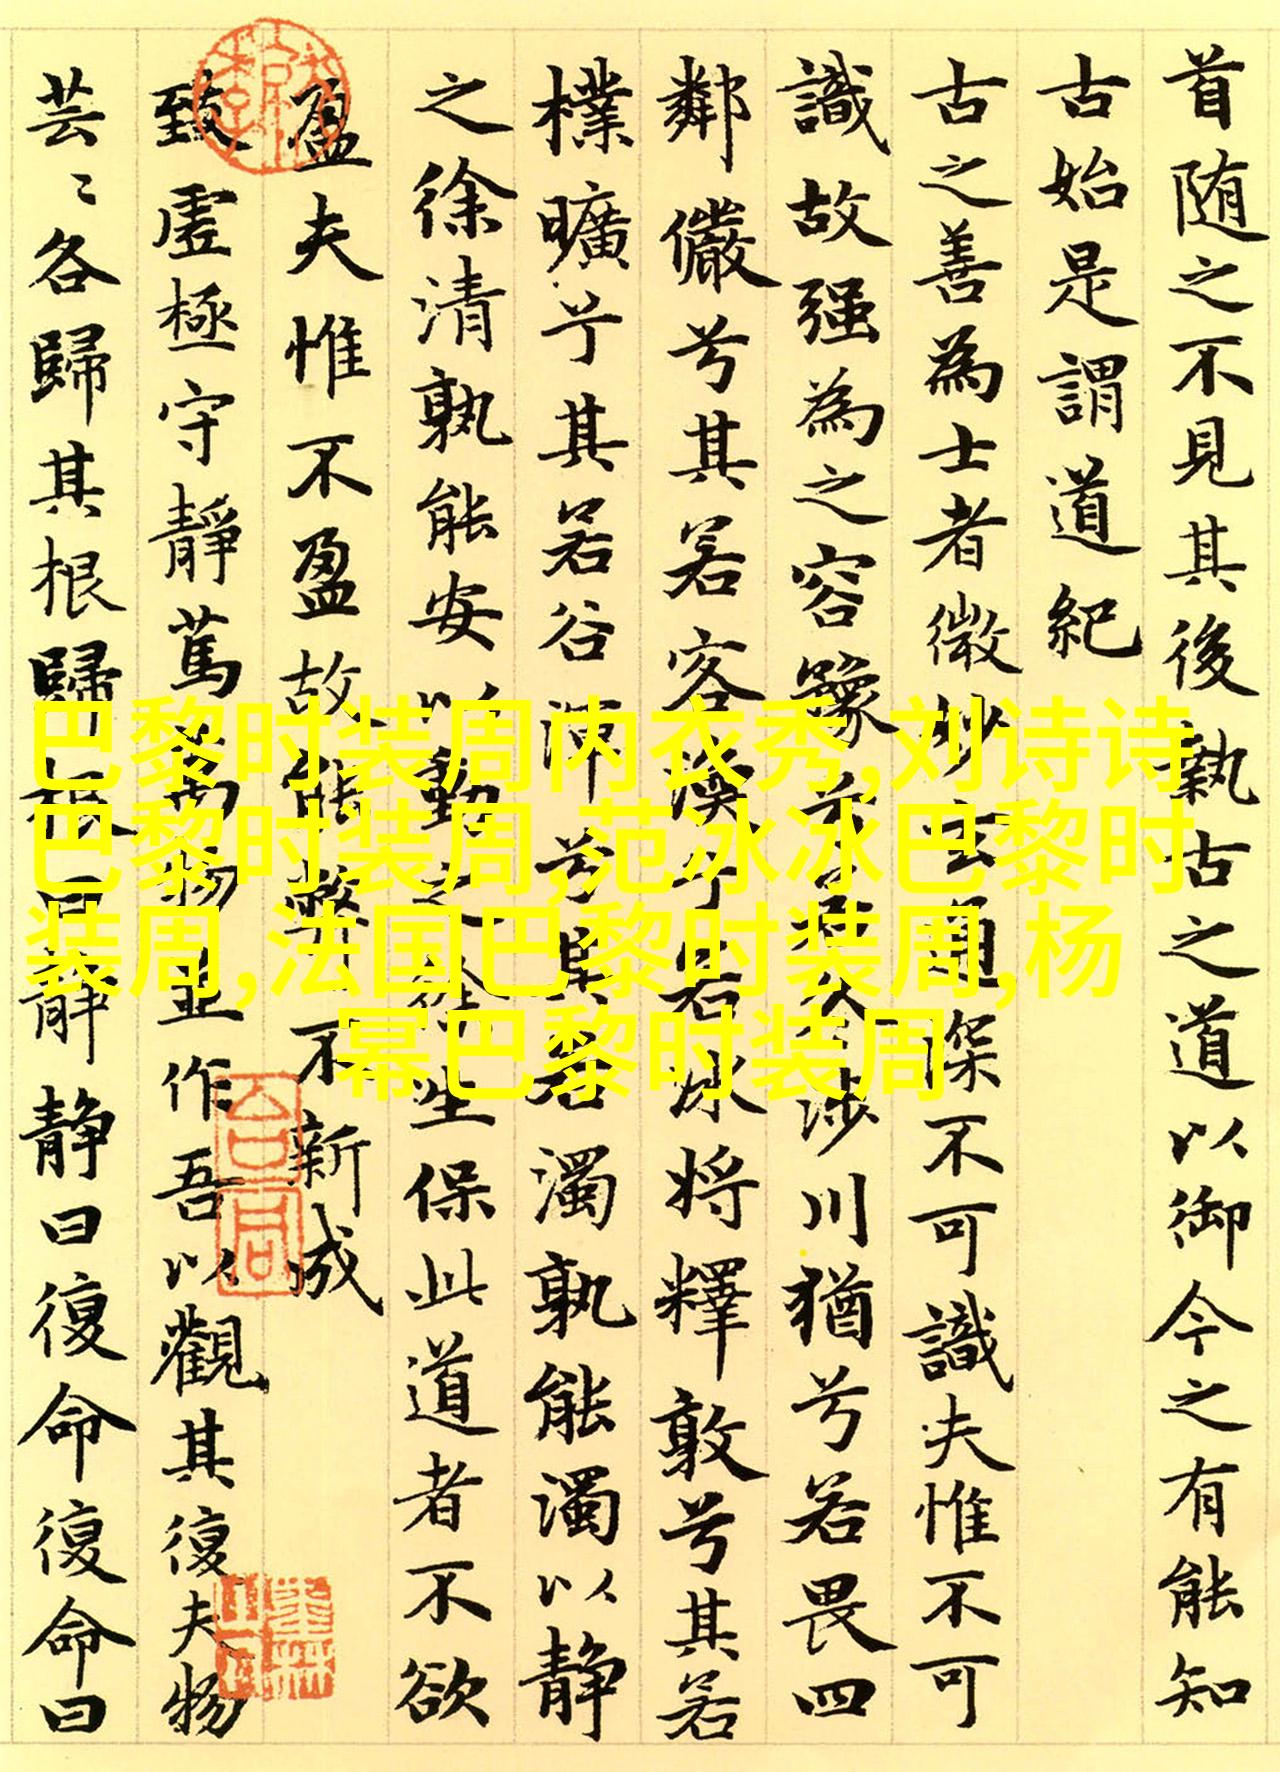 首随之不見其後執古之道以御今之有能知
古始是謂道紀
古之善為士者微妙玄通深不可識夫惟不可
識故强為之容豫兮若冬涉川猶兮若畏四
鄰儼兮其若客渙兮若冰將釋敦兮其若
樸曠兮其若谷渾兮其若濁孰能濁以静
之徐清孰能安以動之徐生保此道者不欲
盈夫惟不盈故能弊不新成
致虛極守靜篤萬物並作吾以觀其復夫物
芸〻各歸其根歸根曰靜静曰復命復命曰
巴黎时装周内衣秀,刘诗诗
巴黎时装周,范冰冰巴黎时
装周,法国巴黎时装周,杨
幂巴黎时装周